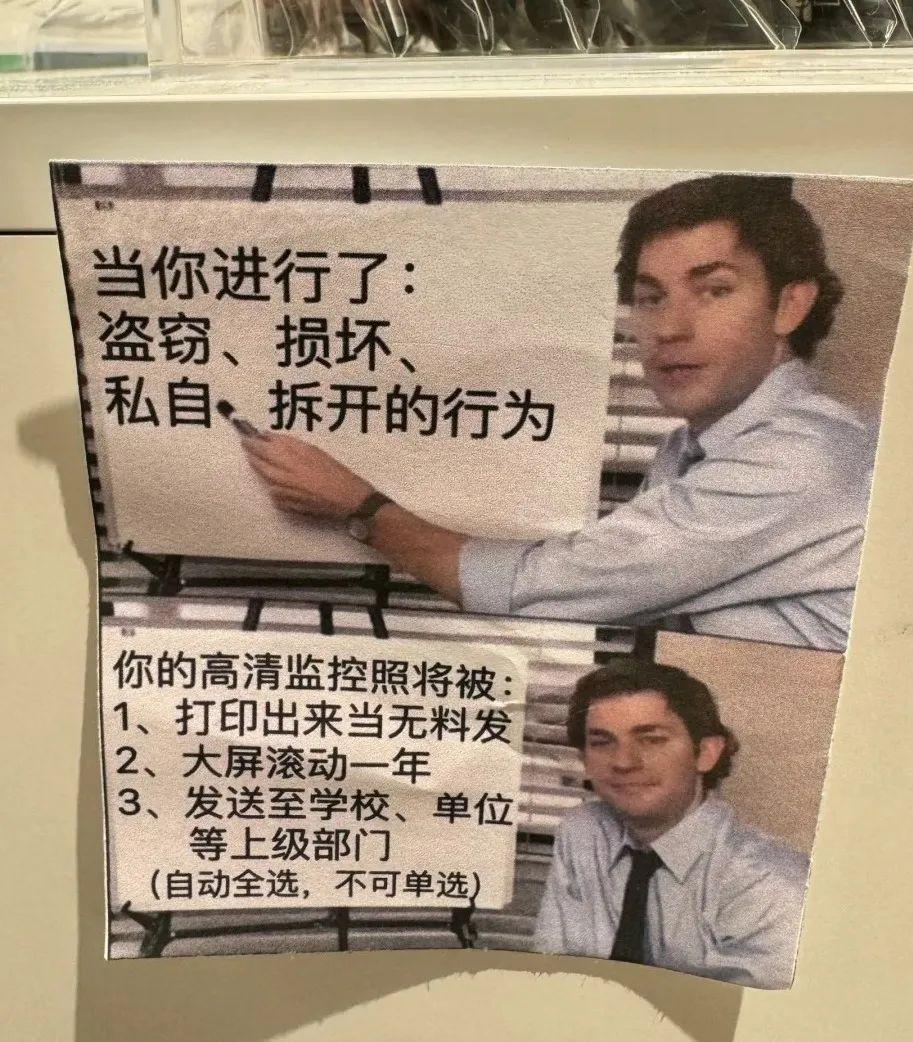 当你进行了：
盗窃、损坏、
私自、拆开的行为
你的高清监控照将被：
1、打印出来当无料发
2、大屏滚动一年
3、发送至学校、单位
等上级部门
（自动全选，不可单选）